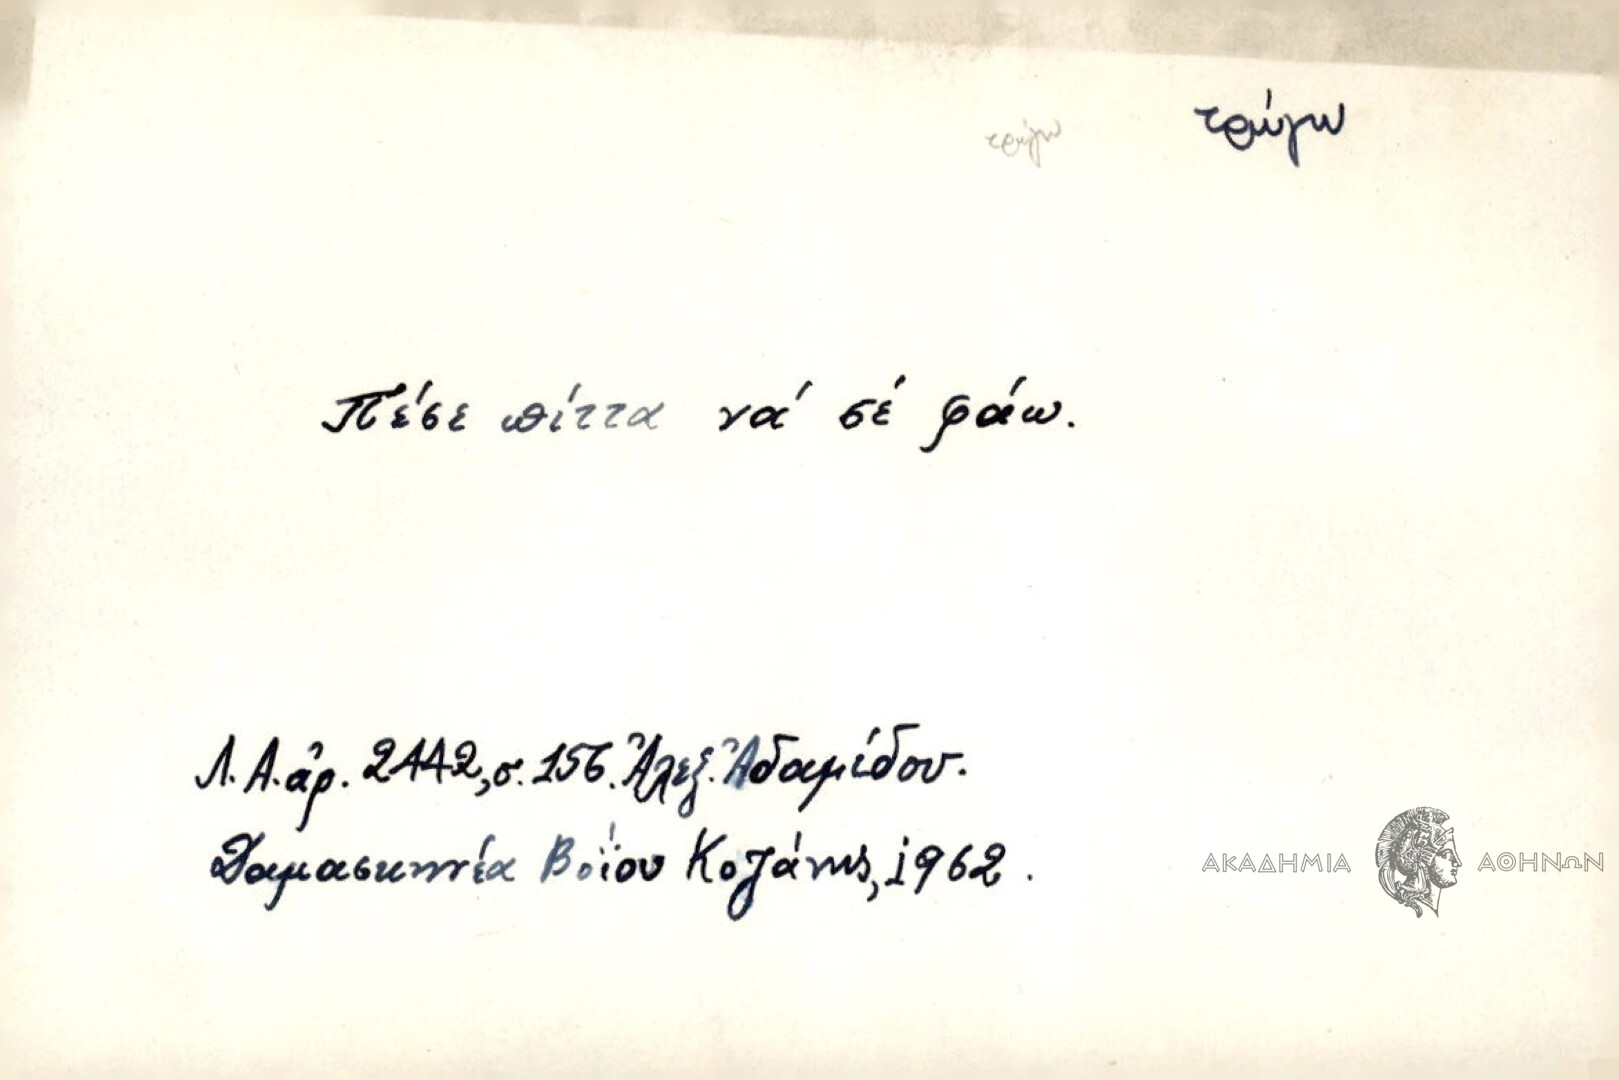 τρώγω τρώγω
Πέσε πίττα νά σέ φάω.
Λ.Α. ἀρ. 2442, σ. 156. Ἀλεξ. Ἀδαμίδου.
Δαμασκηνέα Βοΐου Κοζάνης, 1962.
ΑΚΑΔΗΜΙΑ ΑΘΗΝΩΝ